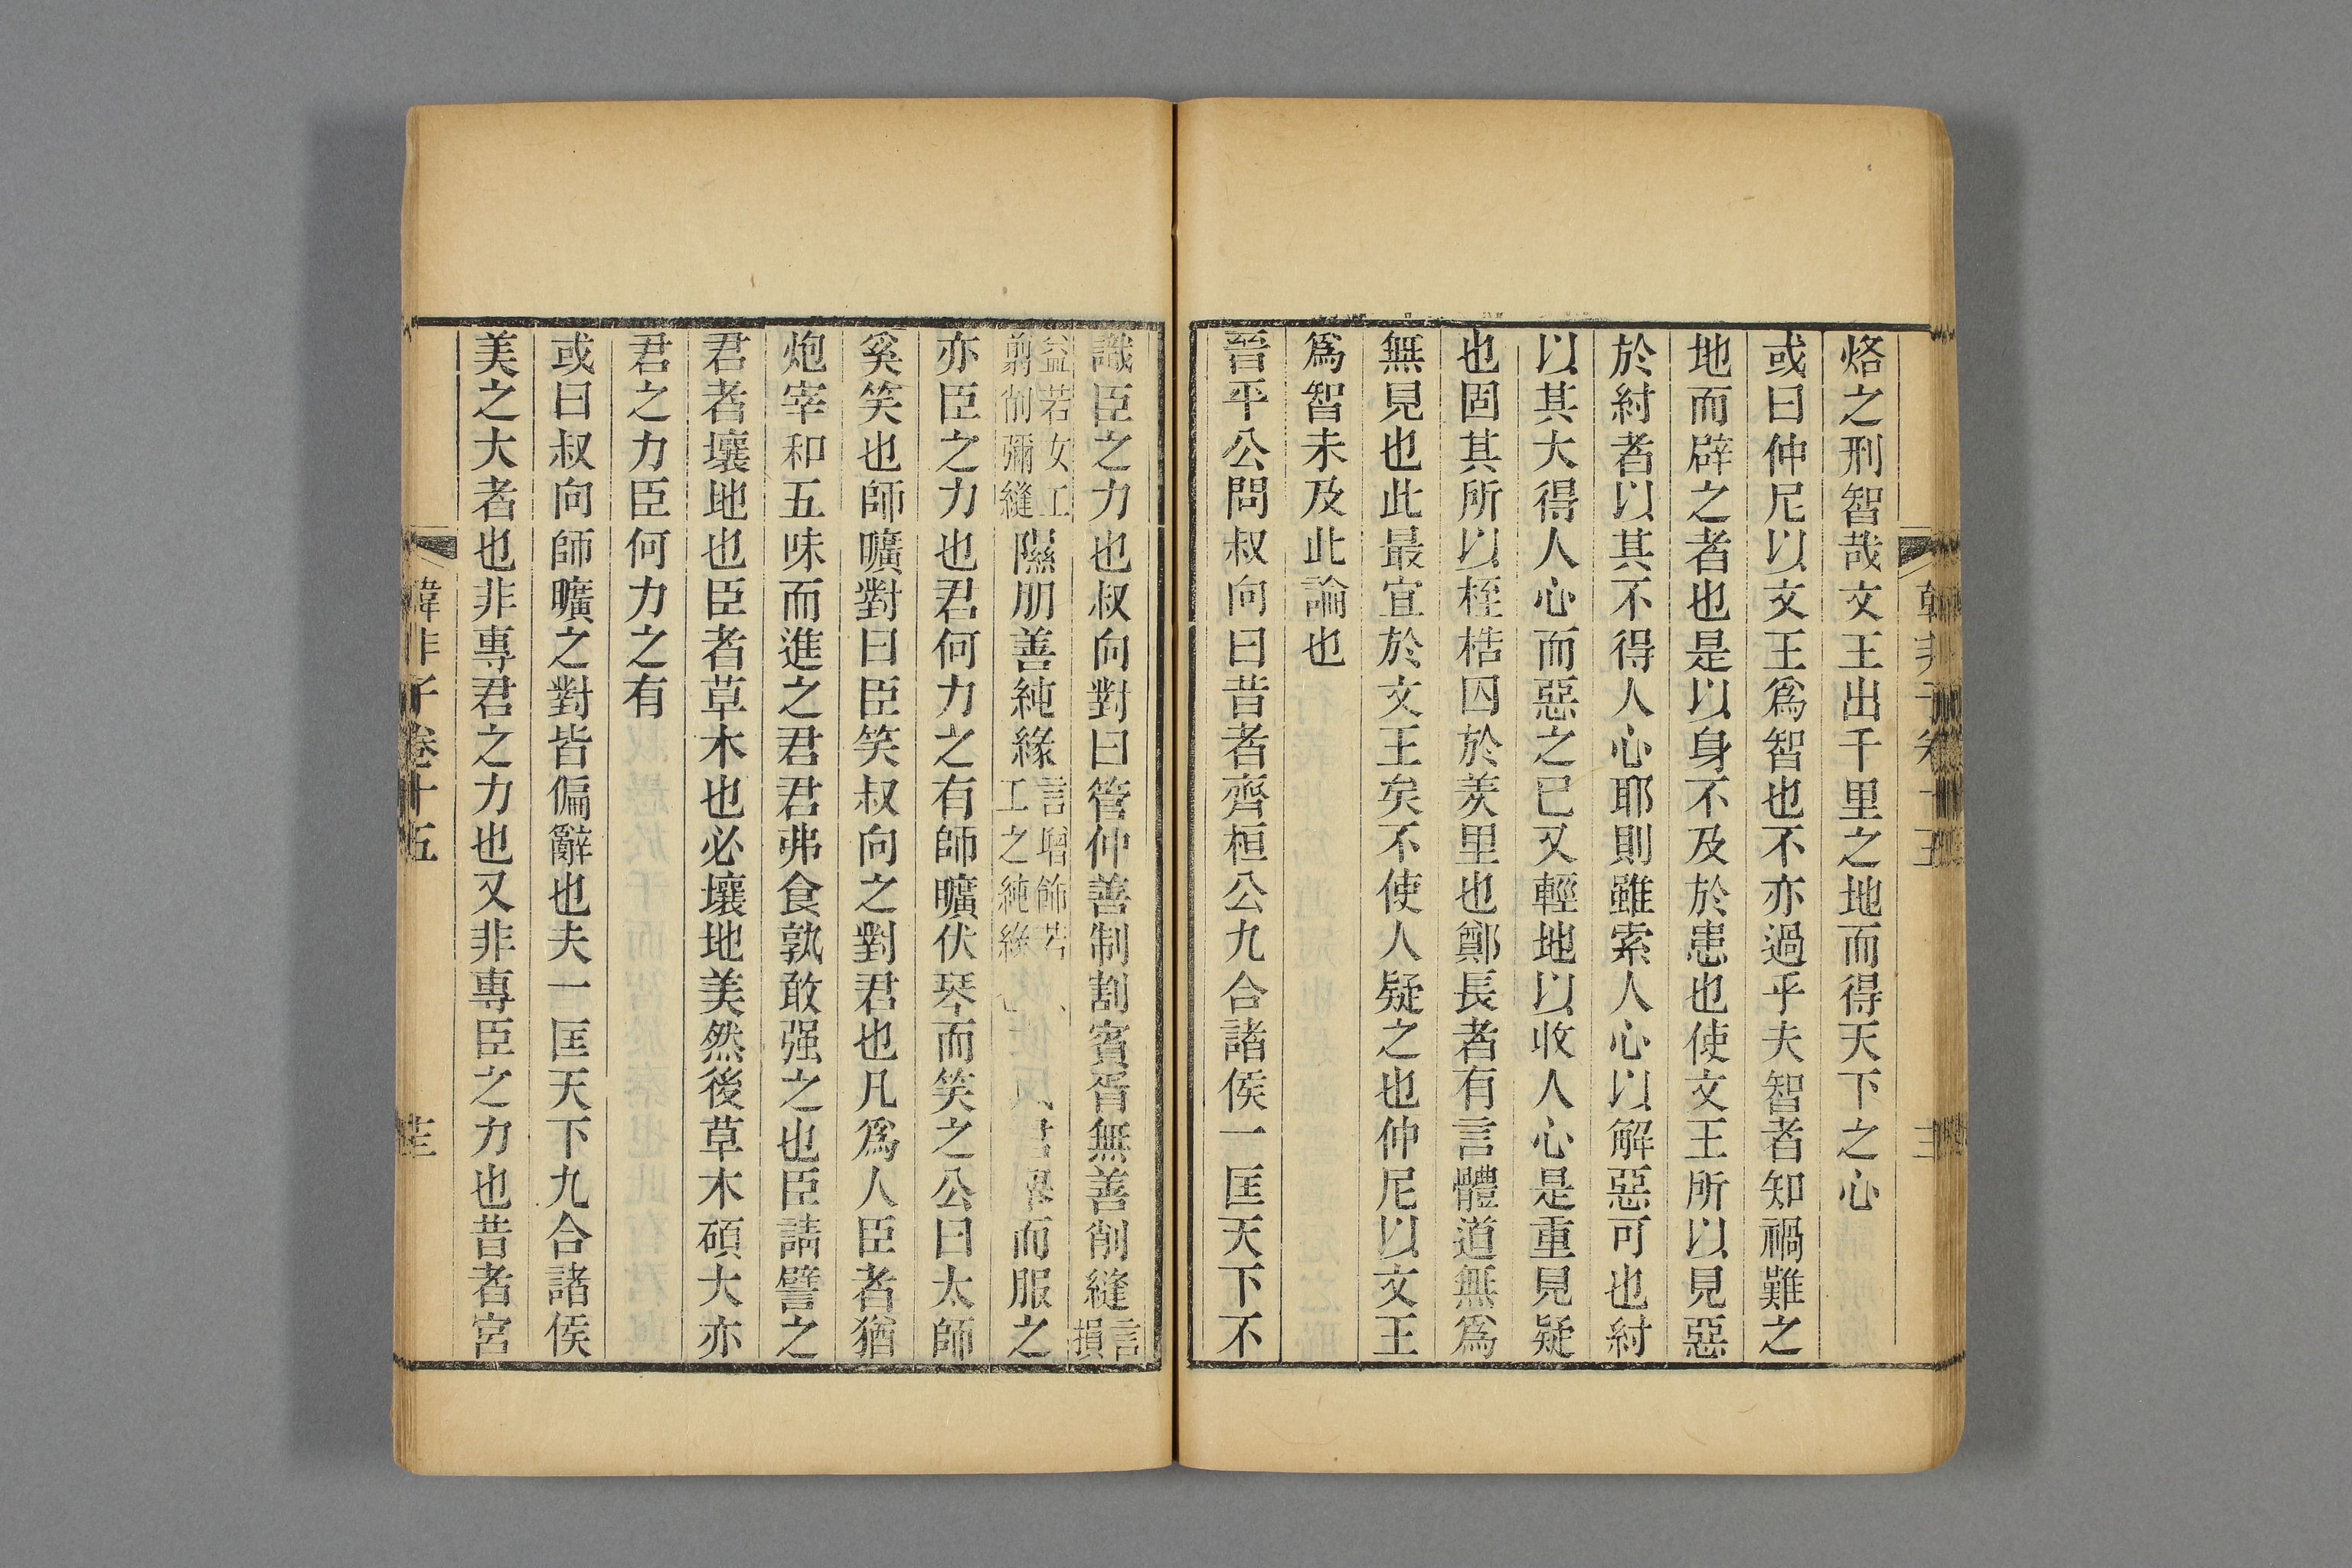 烙之刑智哉文王出千里之地而得天下之心
或曰仲尼以文王爲智也不亦過乎夫智者知禍難之
地而辟之者也是以身不及於患也使文王所以見惡
於紂者以其不得人心耶則雖索人心以解惡可也紂
以其大得人心而惡之已又輕地以收人心是重見疑
也固其所以桎梏囚於羑里也鄭長者有言體道無爲
無見也此最宜於文王矣不使人疑之也仲尼以文王
爲智未及此論也
晉平公問叔向曰昔者齊桓公九合諸侯一匡天下不
識臣之力也叔向對曰管仲善制割賓胥無善削縫言損
益若女工翦削彌縫隰朋善純緣言增飾若工之純緣君而服之
亦臣之力也君何力之有師曠伏琴而笑之公曰太師
奚笑也師曠對曰臣笑叔向之對君也凡爲人臣者猶
炮宰和五味而進之君君弗食孰敢强之也臣請譬之
君者壤地也臣者草木也必壤地美然後草木碩大亦
君之力臣何力之有
或曰叔向師曠之對皆偏辭也夫一匡天下九合諸侯
美之大者也非專君之力也又非專臣之力也昔者宮
韓非子卷十五